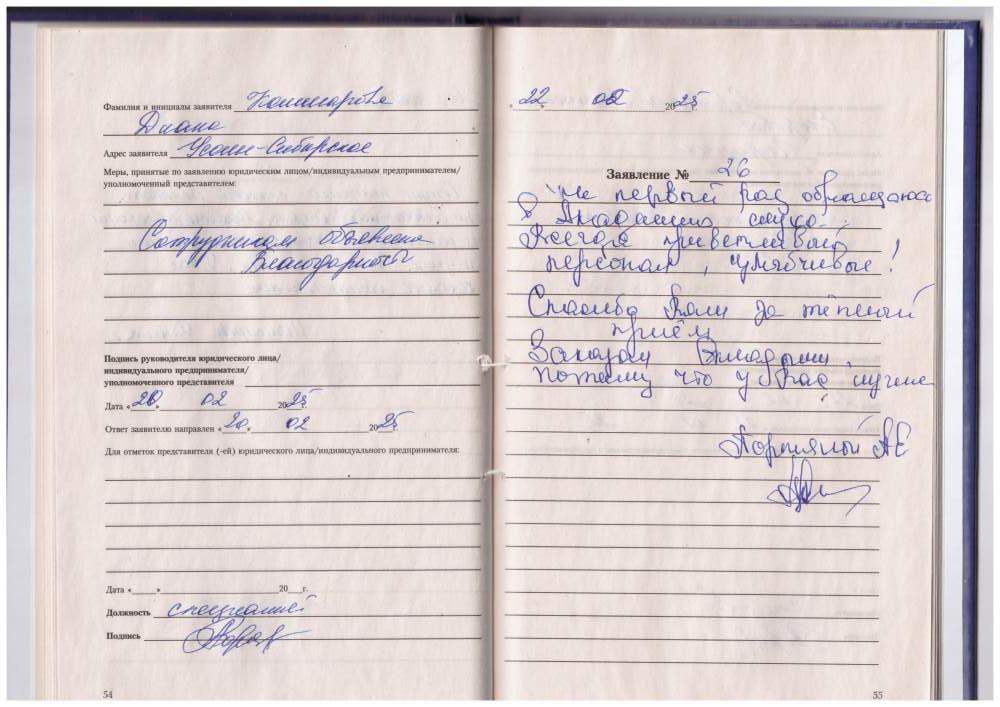 Фамилия и инициалы заявителя Кашкарова
Диана
Адрес заявителя Усолье-Сибирское
Меры, принятые по заявлению юридическим лицом/индивидуальным предпринимателем/
уполномоченный представителем:
Сотрудникам объявлена
Благодарность
Подпись руководителя юридического лица/
индивидуального предпринимателя/
уполномоченного представителя
Дата «20» 02 2025г.
Ответ заявителю направлен «20» 02 2025г.
Для отметок представителя (-ей) юридического лица/индивидуального предпринимателя:
Дата «____» 20__г.
Должность специалист
Подпись
54
22 02 2025г.
Заявление № 26
Не первый раз обращаюсь
в Академию слуха.
Всегда приветливый
персонал, улыбчивые!
Спасибо Вам за тёплый
приём
потому что у Вас лучшие
АЕ
55